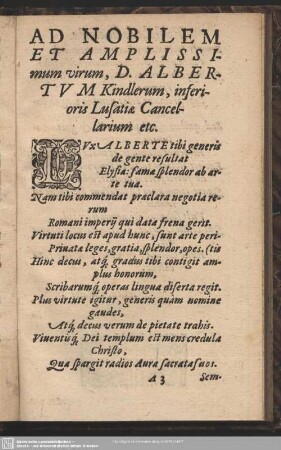 AD NOBILEM
ET AMPLISSI-
mum virum, D. ALBER-
TVM Kindlerum, inferi-
oris Lusatiæ Cancel-
larium etc.
LVx ALBERTE tibi generis
de gente resultat
Elysia: fama splendor ab ar-
te tua.
Nam tibi commendat præclara negotia re-
rum
Romani imperij qui data frena gerit.
Virtuti locus est apud hunc, sunt arte peri-
Priuata leges, gratia, splendor, opes. (tis
Hinc decus, atq; gradus tibi contigit am-
plus honorum,
Scribarumq; operas lingua diserta regit.
Plus virtute igitur, generis quàm nomine
gaudes,
Atq; decus verum de pietate trahis.
Viuentiq; Dei templum est mens credula
Christo,
Qua spargit radios Aura sacrata suos.
A 3 Sem-